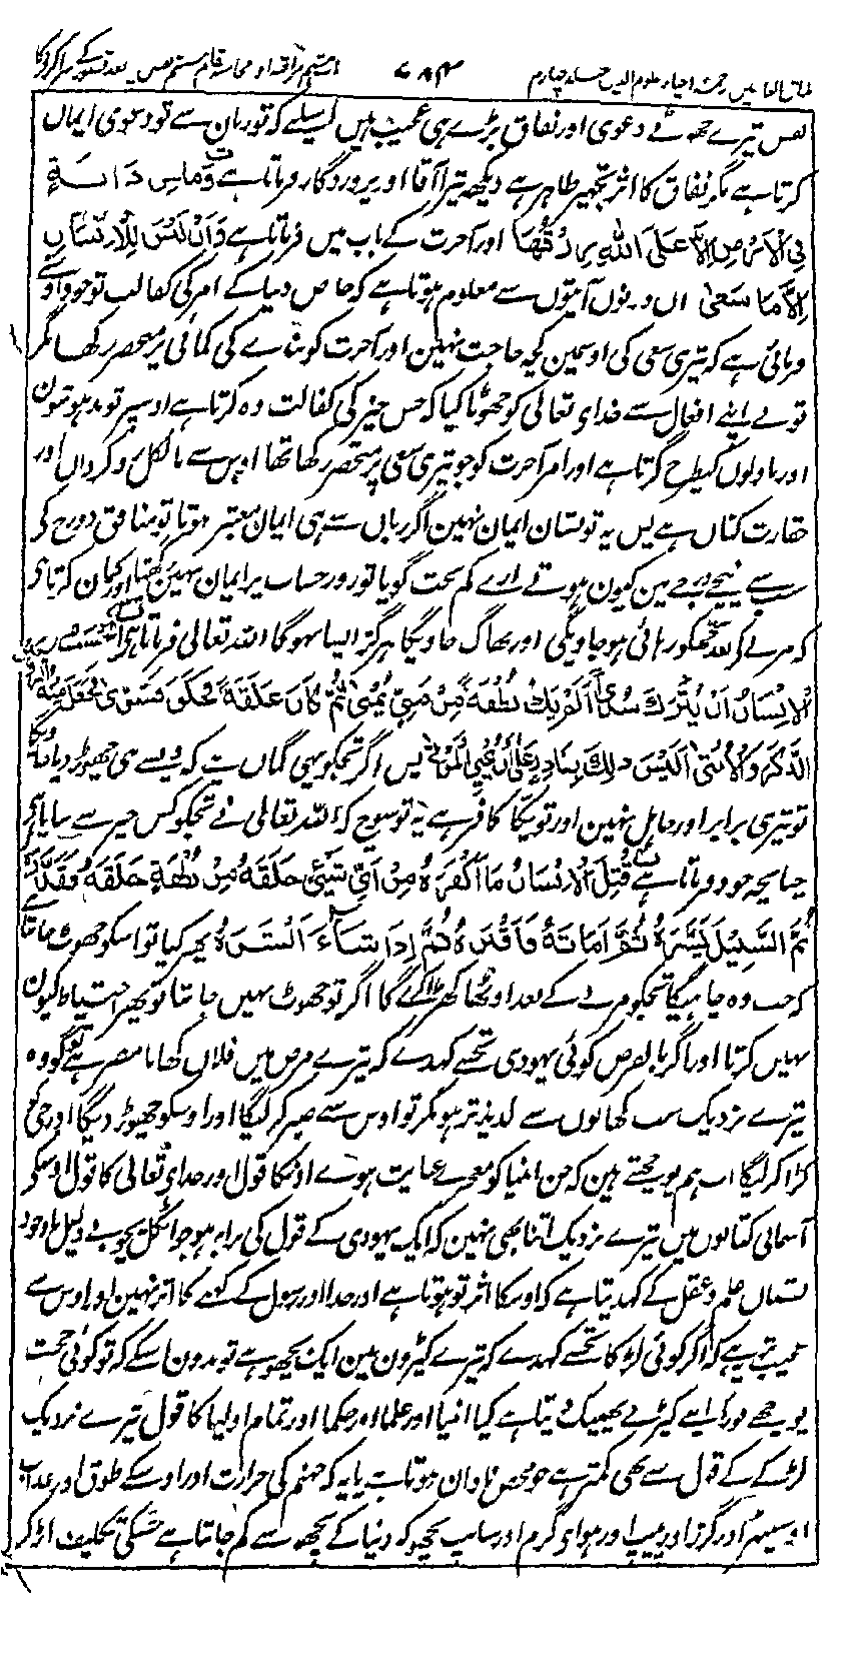 مذاق العارفین ترجمہ احیاء علوم الدین جلد چہارم ۷۸۴ باب ہشتم مراقبہ اور محاسبہ
نفس تیرے جھوٹے دعوی اور نفاق بڑے ہی عجیب ہیں اسلیے کہ تو زبان سے تو دعوی ایمان
کرتا ہے مگر نفاق کا اثر تجھپر ظاہر ہے دیکھ تیرا آقا اور پروردگار فرماتا ہے وَمَا مِن دَابَّةٍ
فِي الْاَرْضِ اِلَّا عَلَى اللهِ رِزْقُهَا اور آخرت کے باب میں فرماتا ہے وَاَنْ لَيْسَ لِلْاِنْسَانِ
اِلَّا مَا سَعٰى ان دونوں آیتوں سے معلوم ہوتا ہے کہ خاص دنیا کے امر کی کفالت تو خود اوسنے
فرمائی ہے کہ تیری سعی کی اوسمین کچھ حاجت نہین اور آخرت کو بندے کی کمائی پر منحصر رکھا مگر
تونے اپنے افعال سے خداے تعالی کو جھوٹا کیا کہ جس چیز کی کفالت وہ کرتا ہے اوسپر تو مدہوشون
اور باولوں کیطرح گرتا ہے اور امر آخرت کو جو تیری سعی پر منحصر رکھا تھا اوس سے بالکل روگرداں اور
حقارت کناں ہے پس یہ تو نشان ایمان نہین اگر زباں سے ہی ایمان معتبر ہوتا تو منافق دوزخ کے
سب سے نیچے درجے مین کیون ہوتے ارے کم بخت گویا تو روز حساب پر ایمان نہین رکھتا اور گمان کرتا ہے
کہ مرنے کے بعد تجھکو رہائی ہو جاویگی اور بھاگ جاویگا ہرگز ایسا نہوگا اللہ تعالی فرماتا ہے اَيَحْسَبُ
الْاِنْسَانُ اَنْ يُتْرَكَ سُدًى اَلَمْ يَكُ نُطْفَةً مِنْ مَنِيٍّ يُمْنٰى ثُمَّ كَانَ عَلَقَةً فَخَلَقَ فَسَوّٰى فَجَعَلَ مِنْهُ
الذَّكَرَ وَالْاُنْثٰى اَلَيْسَ ذٰلِكَ بِقَادِرٍ عَلٰى اَنْ يُحْيِيَ الْمَوْتٰى پس اگر تجھکو یہی گماں ہے کہ ویسے ہی چھوڑ دیا
تو تیری برابر اور جاہل نہین اور تو پکا کافر ہے یہ تو سوچ کہ اللہ تعالی نے تجھکو کس چیز سے بنایا ہے
چنانچہ خود فرماتا ہے قُتِلَ الْاِنْسَانُ مَا اَكْفَرَهُ مِنْ اَيِّ شَيْءٍ خَلَقَهُ مِنْ نُطْفَةٍ خَلَقَهُ فَقَدَّرَهُ
ثُمَّ السَّبِيْلَ يَسَّرَهُ ثُمَّ اَمَاتَهُ فَاَقْبَرَهُ ثُمَّ اِذَا شَاءَ اَنْشَرَهُ پھر کیا تو اسکو جھوٹ جانتا ہے
کہ جب وہ چاہیگا تجکو مرنے کے بعد اوٹھا کھڑا کرے گا اگر تو جھوٹ نہیں جانتا تو پھر احتیاط کیون
نہیں کرتا اور اگر بالفرض کوئی یہودی تجھسے کہدے کہ تیرے مرض میں فلاں کھانا مضر ہے تو گو وہ
تیرے نزدیک سب کھانوں سے لذیذ تر ہو مگر تو اوس سے صبر کر لیگا اور اوسکو چھوڑ دیگا اور جی کو
کڑا کر لیگا اب ہم پوچھتے ہین کہ جن انبیا کو معجزے عنایت ہوے اونکا قول اور خداے تعالی کا قول اوسکی
آسمانی کتابوں میں تیرے نزدیک اتنا بھی نہین کہ ایک یہودی کے قول کی برابر ہو جو اٹکل پچو بے دلیل باوجود
نقصان علم و عقل کے کہدیتا ہے کہ اوسکا اثر تو ہوتا ہے اور خدا اور رسول کے کہنے کا اثر نہین اور اوس سے
عجیب تر یہ ہے کہ اگر کوئی لڑکا تجھسے کہدے کہ تیرے کپڑون مین ایک بچھو ہے تو بدون اسکے کہ تو کوئی حجت
پوچھے فوراً اپنے کپڑے پھینک دیتا ہے کیا انبیا اور علما اور حکما اور تمام اولیا کا قول تیرے نزدیک
لڑکے کے قول سے بھی کمتر ہے جو محض نادان ہوتا ہے یا یہ کہ جہنم کی حرارت اور اوسکے طوق اور عذاب
اور گرز اور پیپ اور ہواے گرم اور سانپ بچھو کو دنیا کے بچھو سے کم جانتا ہے جسکی تکلیف اگر